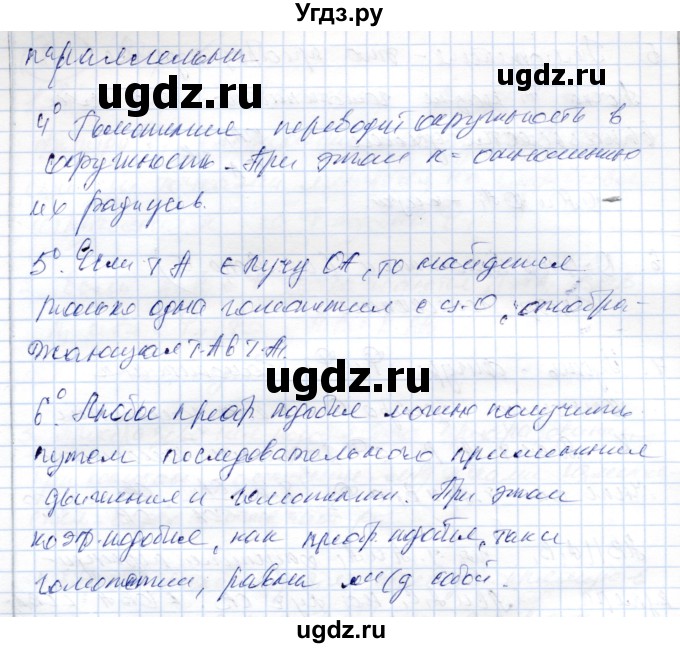 Угдз.ру
параллельны.
ugdz.ru ugdz.ru
4° Гомотетия переводит окружность в
окружность. При этом к = отношению
их радиусов.
ugdz.ru ugdz.ru
5°. Если т А ∈ лучу ОА, то найдется
только одна гомотетия с ц. О, отобра-
жающая т. А в т. А₁.
ugdz.ru
6°. Любое преобр подобия можно получить
путем последовательного применения
движения и гомотетии. При этом
коэф. подобия, как преобр подобия, так и
гомотетии, равны м/д собой.
ugdz.ru
ugdz.ru